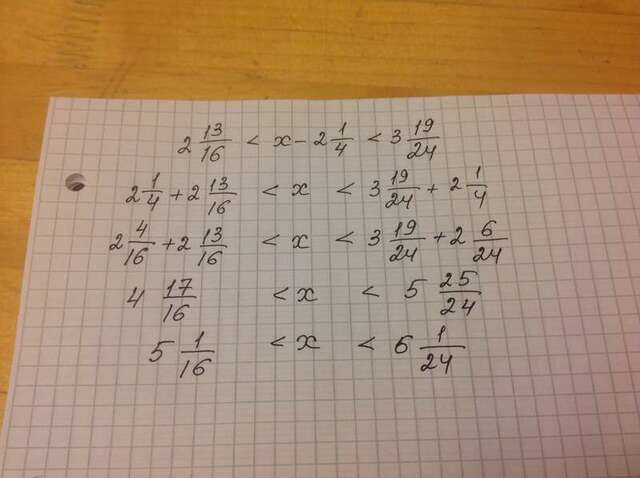 2 13/16 < x - 2 1/4 < 3 19/24
2 1/4 + 2 13/16 < x < 3 19/24 + 2 1/4
2 4/16 + 2 13/16 < x < 3 19/24 + 2 6/24
4 17/16 < x < 5 25/24
5 1/16 < x < 6 1/24